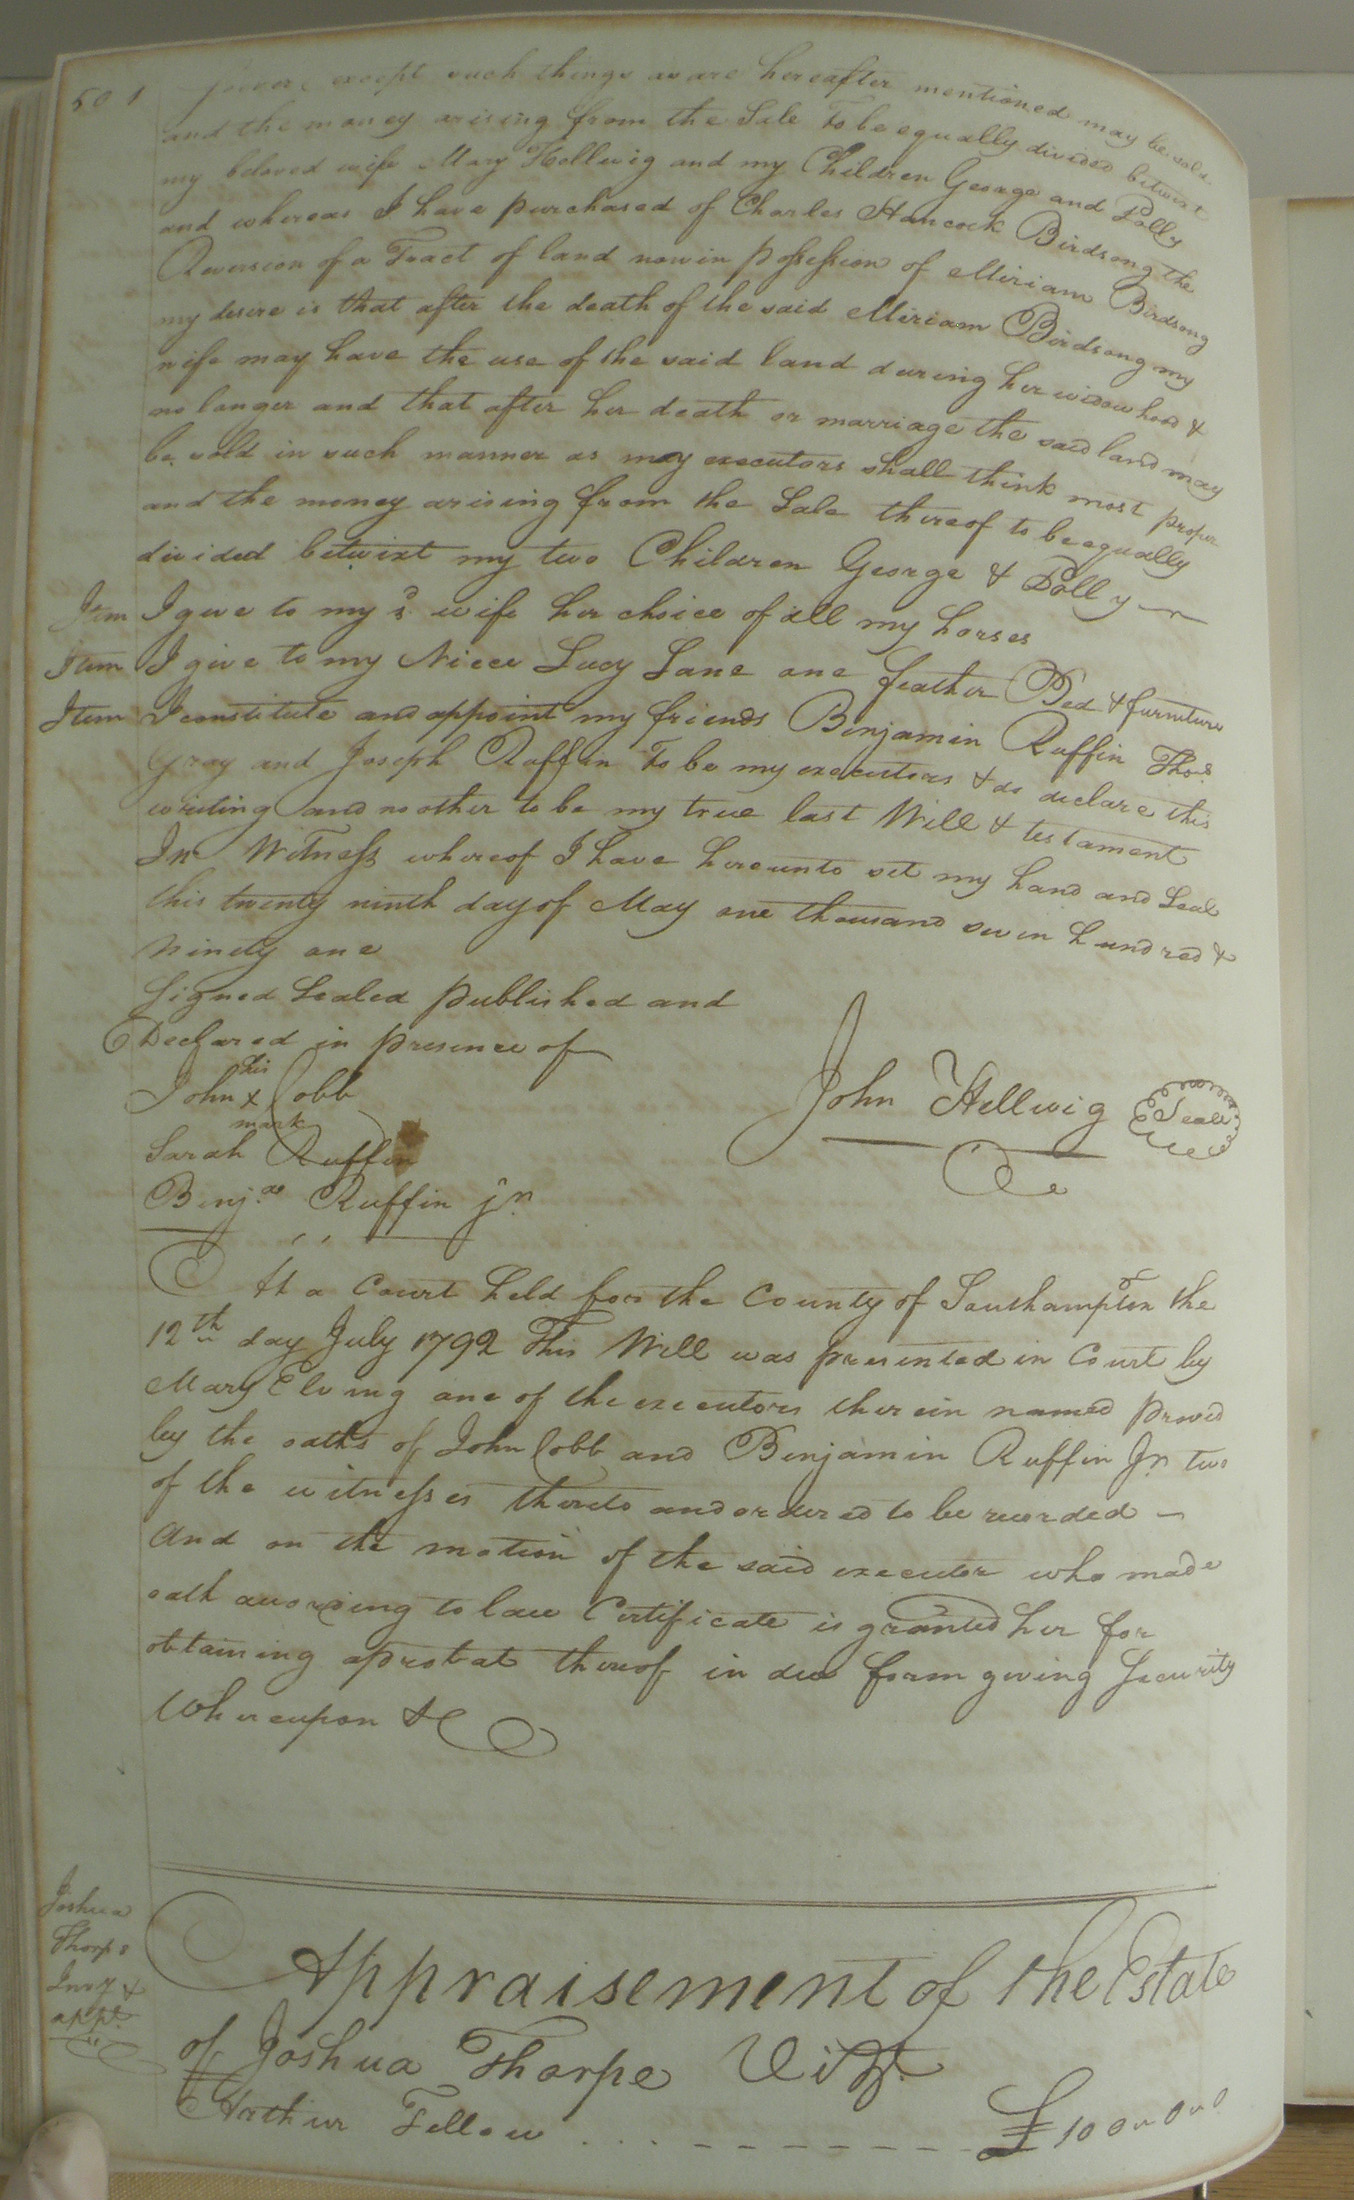 501
forever, except such things as are hereafter mentioned may be sold
and the money arising from the Sale To be equally divided betwixt
my beloved wife Mary Hellwig and my Children George and Polly
and whereas I have purchased of Charles Hancock Birdsong the
Reversion of a Tract of land now in possession of Miriam Birdsong
my desire is that after the death of the said Miriam Birdsong my
wife may have the use of the said land during her widowhood &
no longer and that after her death or marriage the said land may
be sold in such manner as my executors shall think most proper
and the money arising from the Sale thereof to be equally
divided betwixt my two Children George & Polly
Item I give to my sd wife her choice of all my horses
Item I give to my Niece Lucy Lane one feather Bed & furniture
Item I constitute and appoint my friends Benjamin Ruffin Thos
Gray and Joseph Ruffin To be my executors & do declare this
writing and no other to be my true last Will & testament
In Witness whereof I have hereunto set my hand and Seal
this twenty ninth day of May one thousand seven hundred &
Ninety one
Signed Sealed published and
Declared in presence of
his
John x Cobb
mark
John Hellwig Seal
Sarah Ruffin
Benja Ruffin jr
At a Court held for the County of Southampton the
12th day July 1792 This Will was presented in Court by
Mary Elving one of the executors therein named proved
by the oaths of John Cobb and Benjamin Ruffin Jr two
of the witnesses thereto and ordered to be recorded
And on the motion of the said executor who made
oath according to law Certificate is granted her for
obtaining a probat thereof in due form giving Security
Whereupon &c
Joshua
Thorps
Invy &
appt
Appraisement of the Estate
of Joshua Thorpe Vizt
Arthur Fellow . . . - - - - - - - £ 10 0 " 0 " 0